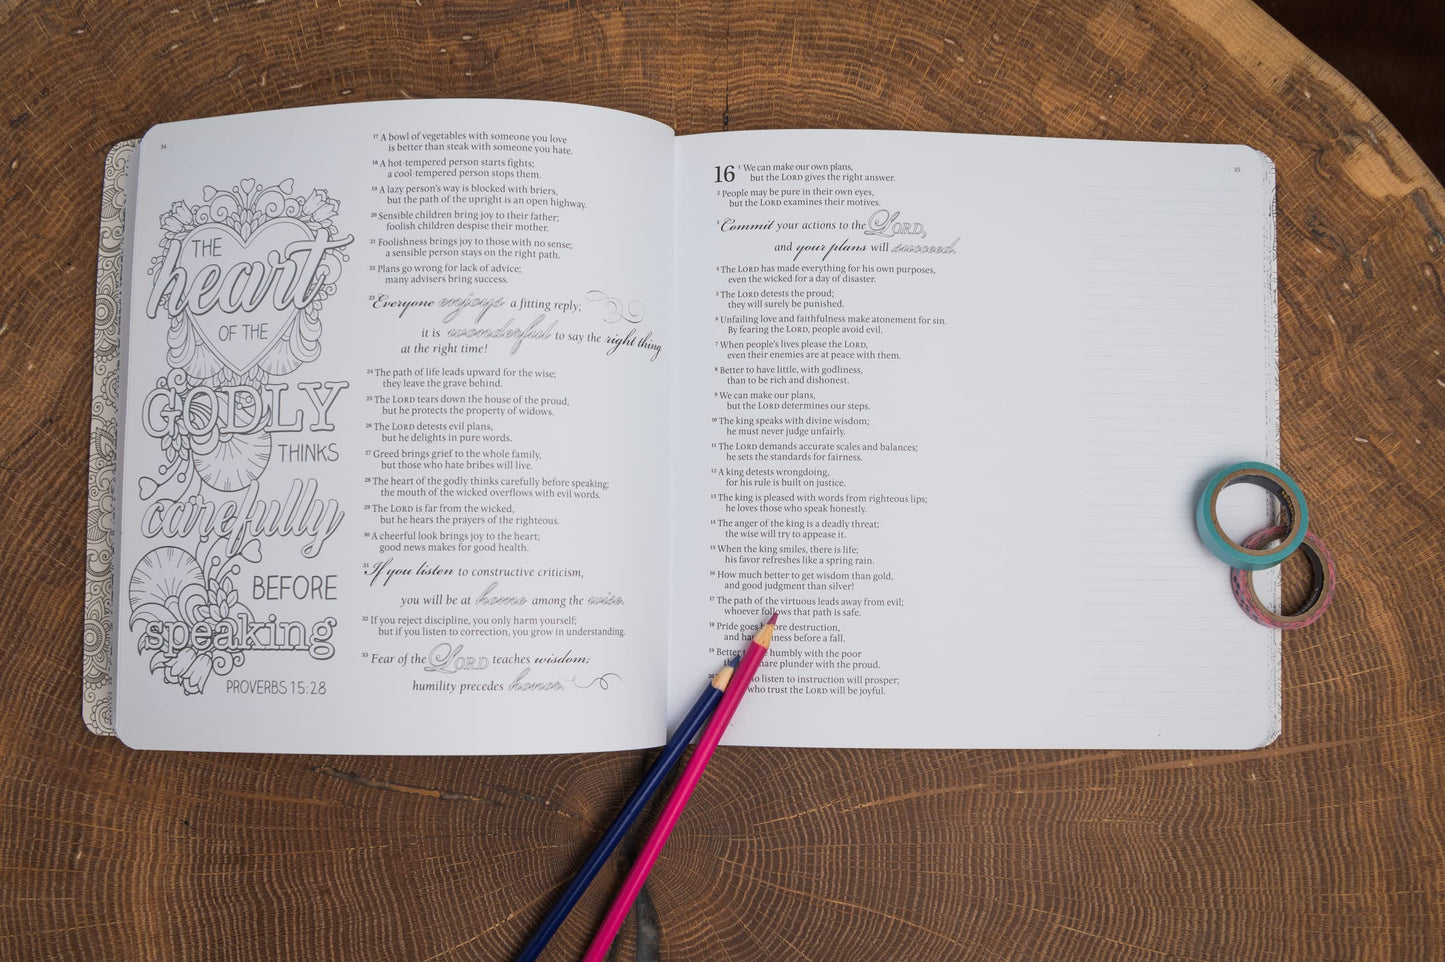 34
THE
heart
OF THE
GODLY
THINKS
carefully
BEFORE
speaking
PROVERBS 15:28
17 A bowl of vegetables with someone you love
is better than steak with someone you hate.
18 A hot-tempered person starts fights;
a cool-tempered person stops them.
19 A lazy person's way is blocked with briers,
but the path of the upright is an open highway.
20 Sensible children bring joy to their father;
foolish children despise their mother.
21 Foolishness brings joy to those with no sense;
a sensible person stays on the right path.
22 Plans go wrong for lack of advice;
many advisers bring success.
23 Everyone enjoys a fitting reply;
it is wonderful to say the right thing
at the right time!
24 The path of life leads upward for the wise;
they leave the grave behind.
25 The LORD tears down the house of the proud,
but he protects the property of widows.
26 The LORD detests evil plans,
but he delights in pure words.
27 Greed brings grief to the whole family,
but those who hate bribes will live.
28 The heart of the godly thinks carefully before speaking;
the mouth of the wicked overflows with evil words.
29 The LORD is far from the wicked,
but he hears the prayers of the righteous.
30 A cheerful look brings joy to the heart;
good news makes for good health.
31 If you listen to constructive criticism,
you will be at home among the wise.
32 If you reject discipline, you only harm yourself;
but if you listen to correction, you grow in understanding.
33 Fear of the LORD teaches wisdom;
humility precedes honor.
35
16 1 We can make our own plans,
but the LORD gives the right answer.
2 People may be pure in their own eyes,
but the LORD examines their motives.
3 Commit your actions to the LORD,
and your plans will succeed.
4 The LORD has made everything for his own purposes,
even the wicked for a day of disaster.
5 The LORD detests the proud;
they will surely be punished.
6 Unfailing love and faithfulness make atonement for sin.
By fearing the LORD, people avoid evil.
7 When people's lives please the LORD,
even their enemies are at peace with them.
8 Better to have little, with godliness,
than to be rich and dishonest.
9 We can make our plans,
but the LORD determines our steps.
10 The king speaks with divine wisdom;
he must never judge unfairly.
11 The LORD demands accurate scales and balances;
he sets the standards for fairness.
12 A king detests wrongdoing,
for his rule is built on justice.
13 The king is pleased with words from righteous lips;
he loves those who speak honestly.
14 The anger of the king is a deadly threat;
the wise will try to appease it.
15 When the king smiles, there is life;
his favor refreshes like a spring rain.
16 How much better to get wisdom than gold,
and good judgment than silver!
17 The path of the virtuous leads away from evil;
whoever follows that path is safe.
18 Pride goes before destruction,
and haughtiness before a fall.
19 Better humbly with the poor
share plunder with the proud.
20 listen to instruction will prosper;
who trust the LORD will be joyful.